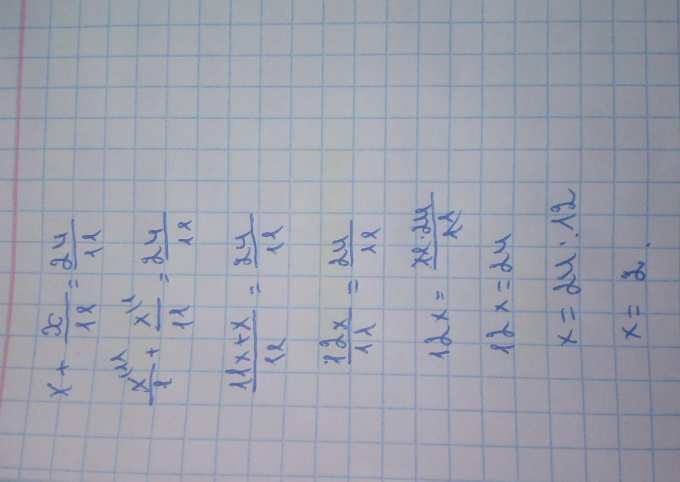 x + x/11 = 24/11
x\11/1 + x\1/11 = 24/11
11x+x/11 = 24/11
12x/11 = 24/11
12x = 11·24/11
12x = 24
x = 24:12
x = 2.